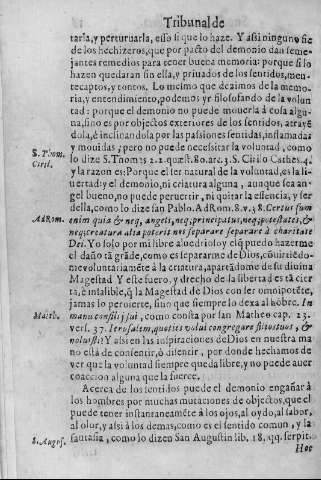 Tribunal de
tarla, y perturuarla, esso si que lo haze. Y assi ninguno fie
de los hechizeros, que por pacto del demonio dan seme-
jantes remedios para tener buena memoria: porque si lo
hazen quedaran sin ella, y priuados de los sentidos, men-
tecaptos, y tontos. Lo mcimo que dezimos de la memo-
ria, y entendimiento, podemos yr filosofando de la volun
tad: porque el demonio no puede mouerla à cosa algu-
na, sino es por objectos exteriores de los sentidos, atraye͂
dola, è inclinandola por las passiones sentidas, inflamadas
y mouidas; pero no puede necessitar la voluntad, como
S. Thom.
Ciril.
lo dize S. Thom. 2.2. quæst. 80. arc. 3. S. Cirilo Cathes. 4.
y la razon es: Porque el ser natural de la voluntad, es la li-
uertad: y el demonio, ni criatura alguna, aunque sea an-
gel bueno, no puede peruertir, ni quitar la silencia, y ser
della, como lo dize san Pablo. Ad Rom. 8. v. 38. Certus sum
Ad Rom.
enim quia & neq; angeli, neq; principatus, neq; potestates, &
neq; creatura alia poterit nos separare separare à charitate
Dei. Yo solo por mi libre aluedrio soy el q̃ puedo hazerme
el daño tã grãde, como es separarme de Dios, cõuirtiẽdo-
me voluntariamẽte à la criatura, apartãdome de su diuina
Magestad Y este fuero, y drecho de la libertad es tã cier-
ta, è infalible, q̃ la Magestad de Dios con ser omnipotẽte,
jamas lo peruierte, sino que siempre lo dexa al hõbre. In
Matth.
manu consilij sui, como consta por san Matheo cap. 23.
vers. 37. Ierosalem, quoties volui congregare filios tuos, &
noluisti? Y assi en las inspiraciones de Dios en nuestra ma
no està de consentir, ò disentir, por donde hechamos de
ver que la voluntad siempre queda libre, y no puede auer
coaccion alguna que la fuerce.
Acerca de los sentidos puede el demonio engañar à
los hombres por muchas mutaciones de objectos, que el
puede tener instantaneamẽte à los ojos, al oydo, al sabor,
al olor, y assi à los demas, como es el sentido comun, y la
S. Augus.
fantasia, como lo dizen San Augustin lib. 18. qq. serpit.
Hoc